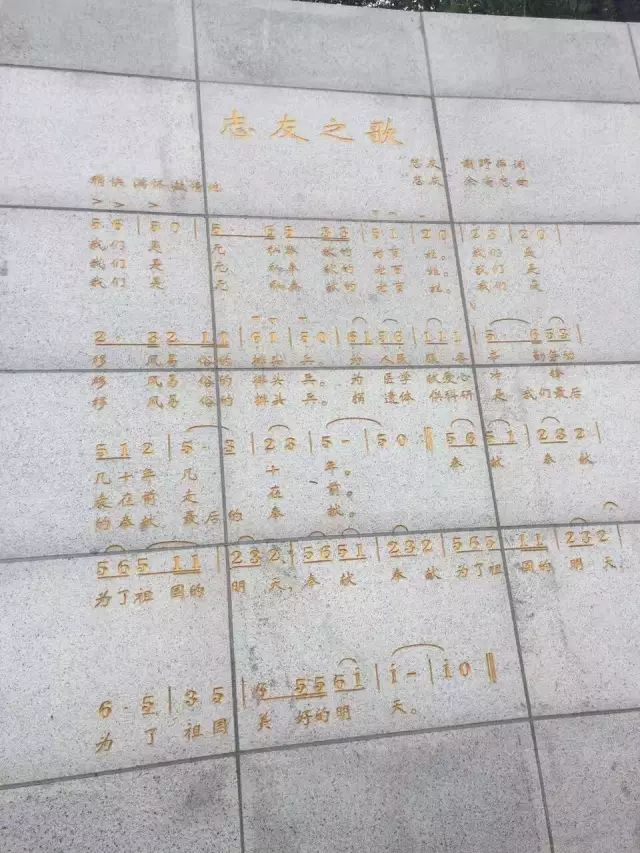 志友之歌
志友 词
稍快 满怀激情地 志友 余 志 曲
5 6 | 5 0 | 5 · 6 5 3 3 | 5 1 | 2 0 | 3 3 | 2 0 |
我们 是 无 私奉 献的 老百 姓。 我们 是
我们 是 无 私奉 献的 老百 姓。 我们 是
我们 是 无 私奉 献的 老百 姓。 我们 是
2 · 3 2 1 1
移 风易 俗的 排头 兵。 为 人民 服 务 辛 勤劳动
移 风易 俗的 排头 兵。 为 医学 献爱心 冲 锋
移 风易 俗的 排头 兵。 捐 遗体 供科研 是 我们最后
5 1 2 | 5 · 3 | 2 3 | 5 - | 5 0 :‖ 5 6 | 5 6 5 1 | 2 3 2 |
几十年 几 十 年。 奉 献 奉 献
走在前 走 在 前。
的奉献 最后的 奉 献。
5 6 5 1 1 | 2 3 2 | 5 6 5 1 | 2 3 2 | 5 6 5 1 1 | 2 3 2 |
为了祖 国的 明 天, 奉 献 奉 献 为了祖 国的 明 天
6 · 5 | 3 5 | 6 5 5 6 i | i - | i 0 ‖
为 了 祖国 美 好的明 天。